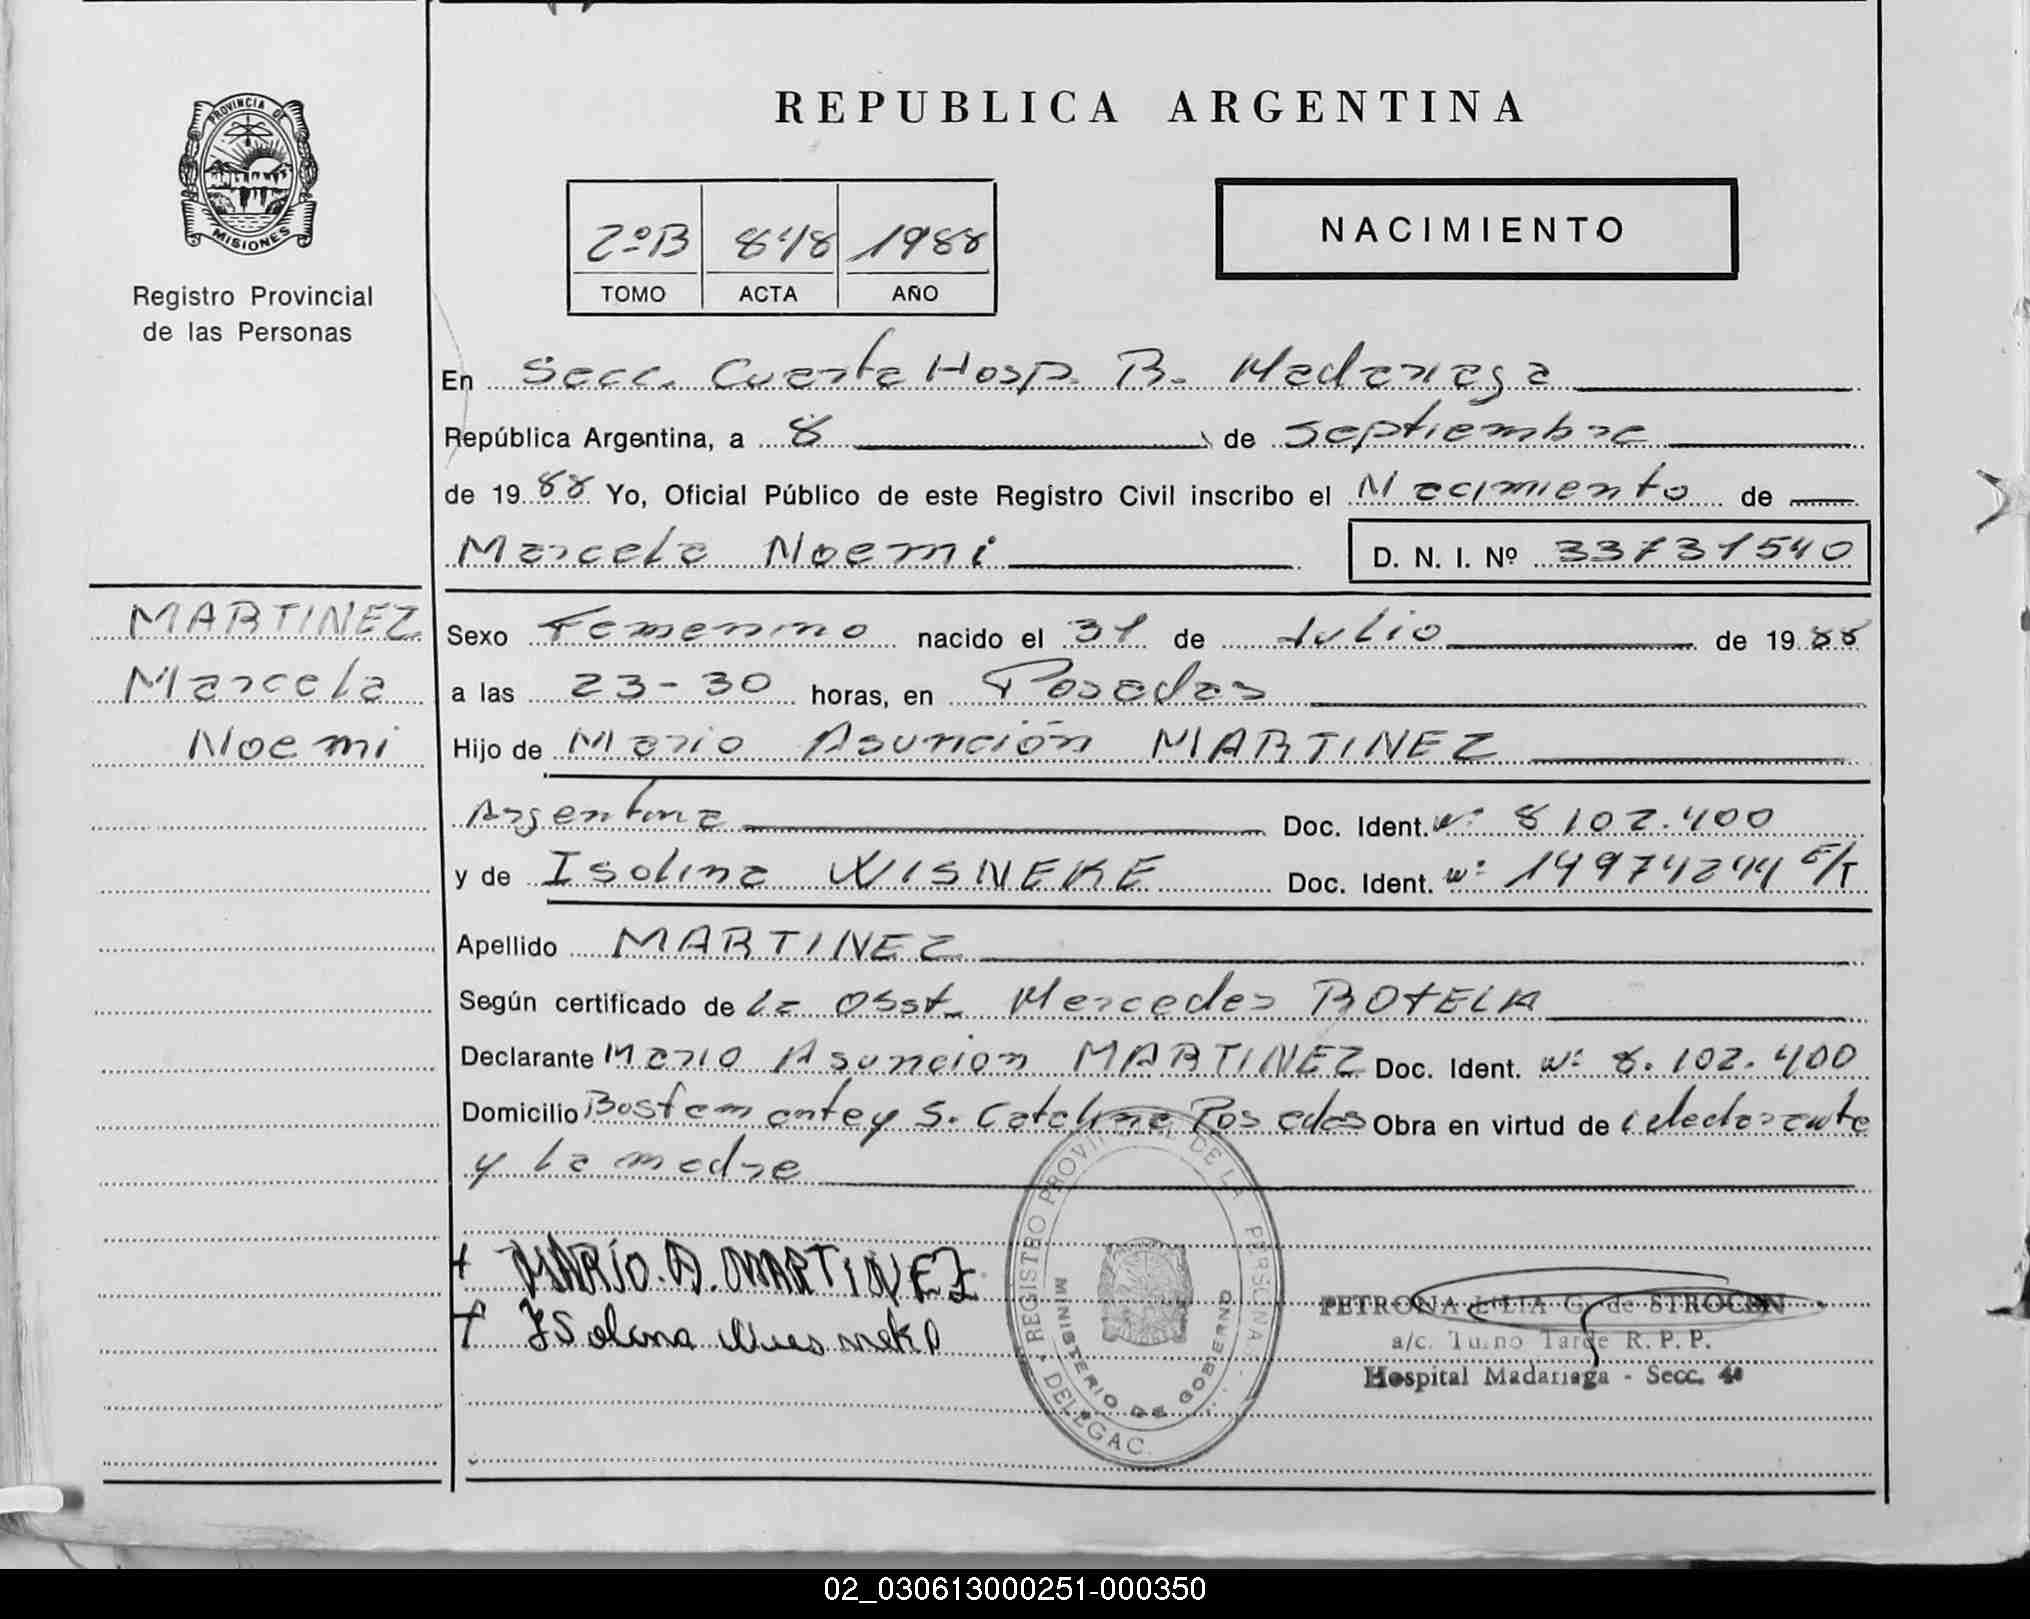 REPUBLICA ARGENTINA
PROVINCIA DE
MISIONES
Registro Provincial
de las Personas
2º B 848 1988
TOMO ACTA AÑO
NACIMIENTO
En Secc. Cuarta Hosp. B. Madariaga
República Argentina, a 8 de septiembre
de 1988 Yo, Oficial Público de este Registro Civil inscribo el Nacimiento de
Marcela Noemi D. N. I. Nº 33731540
MARTINEZ
Marcela
Noemi
Sexo Femenino nacido el 31 de Julio de 1988
a las 23-30 horas, en Posadas
Hijo de Mario Asunción MARTINEZ
Argentina Doc. Ident. Nº 8102.400
y de Isolina WISNEKE Doc. Ident. Nº 14974244 E/T
Apellido MARTINEZ
Según certificado de la Obst. Mercedes BOTELA
Declarante Mario Asuncion MARTINEZ Doc. Ident. Nº 8.102.400
Domicilio Bustamante y S. Catalina Posadas Obra en virtud de declarante
y la madre
MARÍO. A. MARTINEZ
ISolina
REGISTRO PROVINCIAL DE LA PERSONA
DELEGAC.
MINISTERIO DE GOBIERNO
PETRONA LILIA G. de STROCEN
a/c. Turno Tarde R. P. P.
Hospital Madariaga - Secc. 4ª
02_030613000251-000350